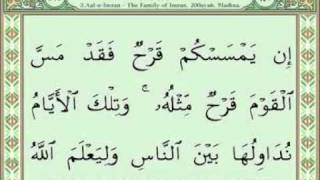 3.Aal-e-Imran - The Family of Imran, 200ayah, Madina
إِن يَمْسَسْكُمْ قَرْحٌ فَقَدْ مَسَّ
ٱلْقَوْمَ قَرْحٌ مِّثْلُهُۥ ۚ وَتِلْكَ ٱلْأَيَّامُ
نُدَاوِلُهَا بَيْنَ ٱلنَّاسِ وَلِيَعْلَمَ ٱللَّهُ